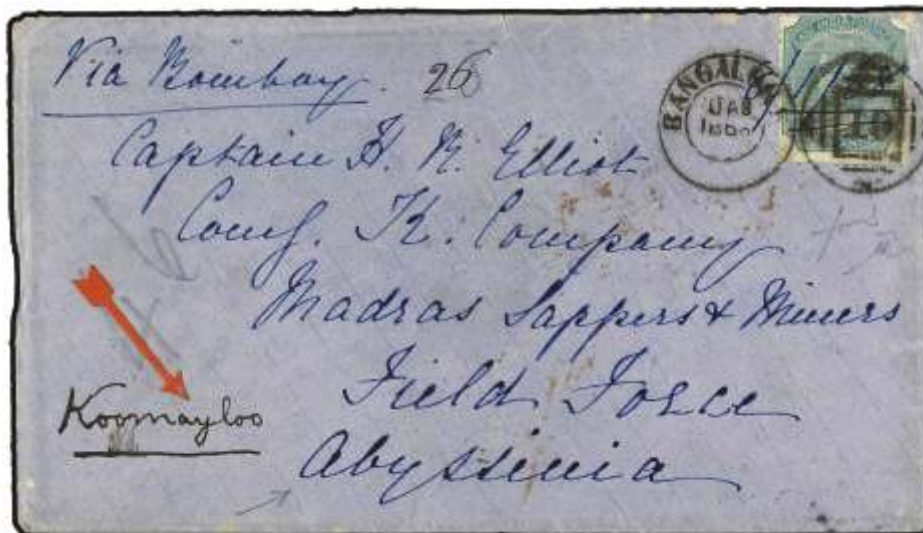 Via Bombay. 26
BANGALORE
JA 8
186
Captain H. R. Elliot
Comg. K. Company
Madras Sappers & Miners
Field Force
Abyssinia
Koomayloo